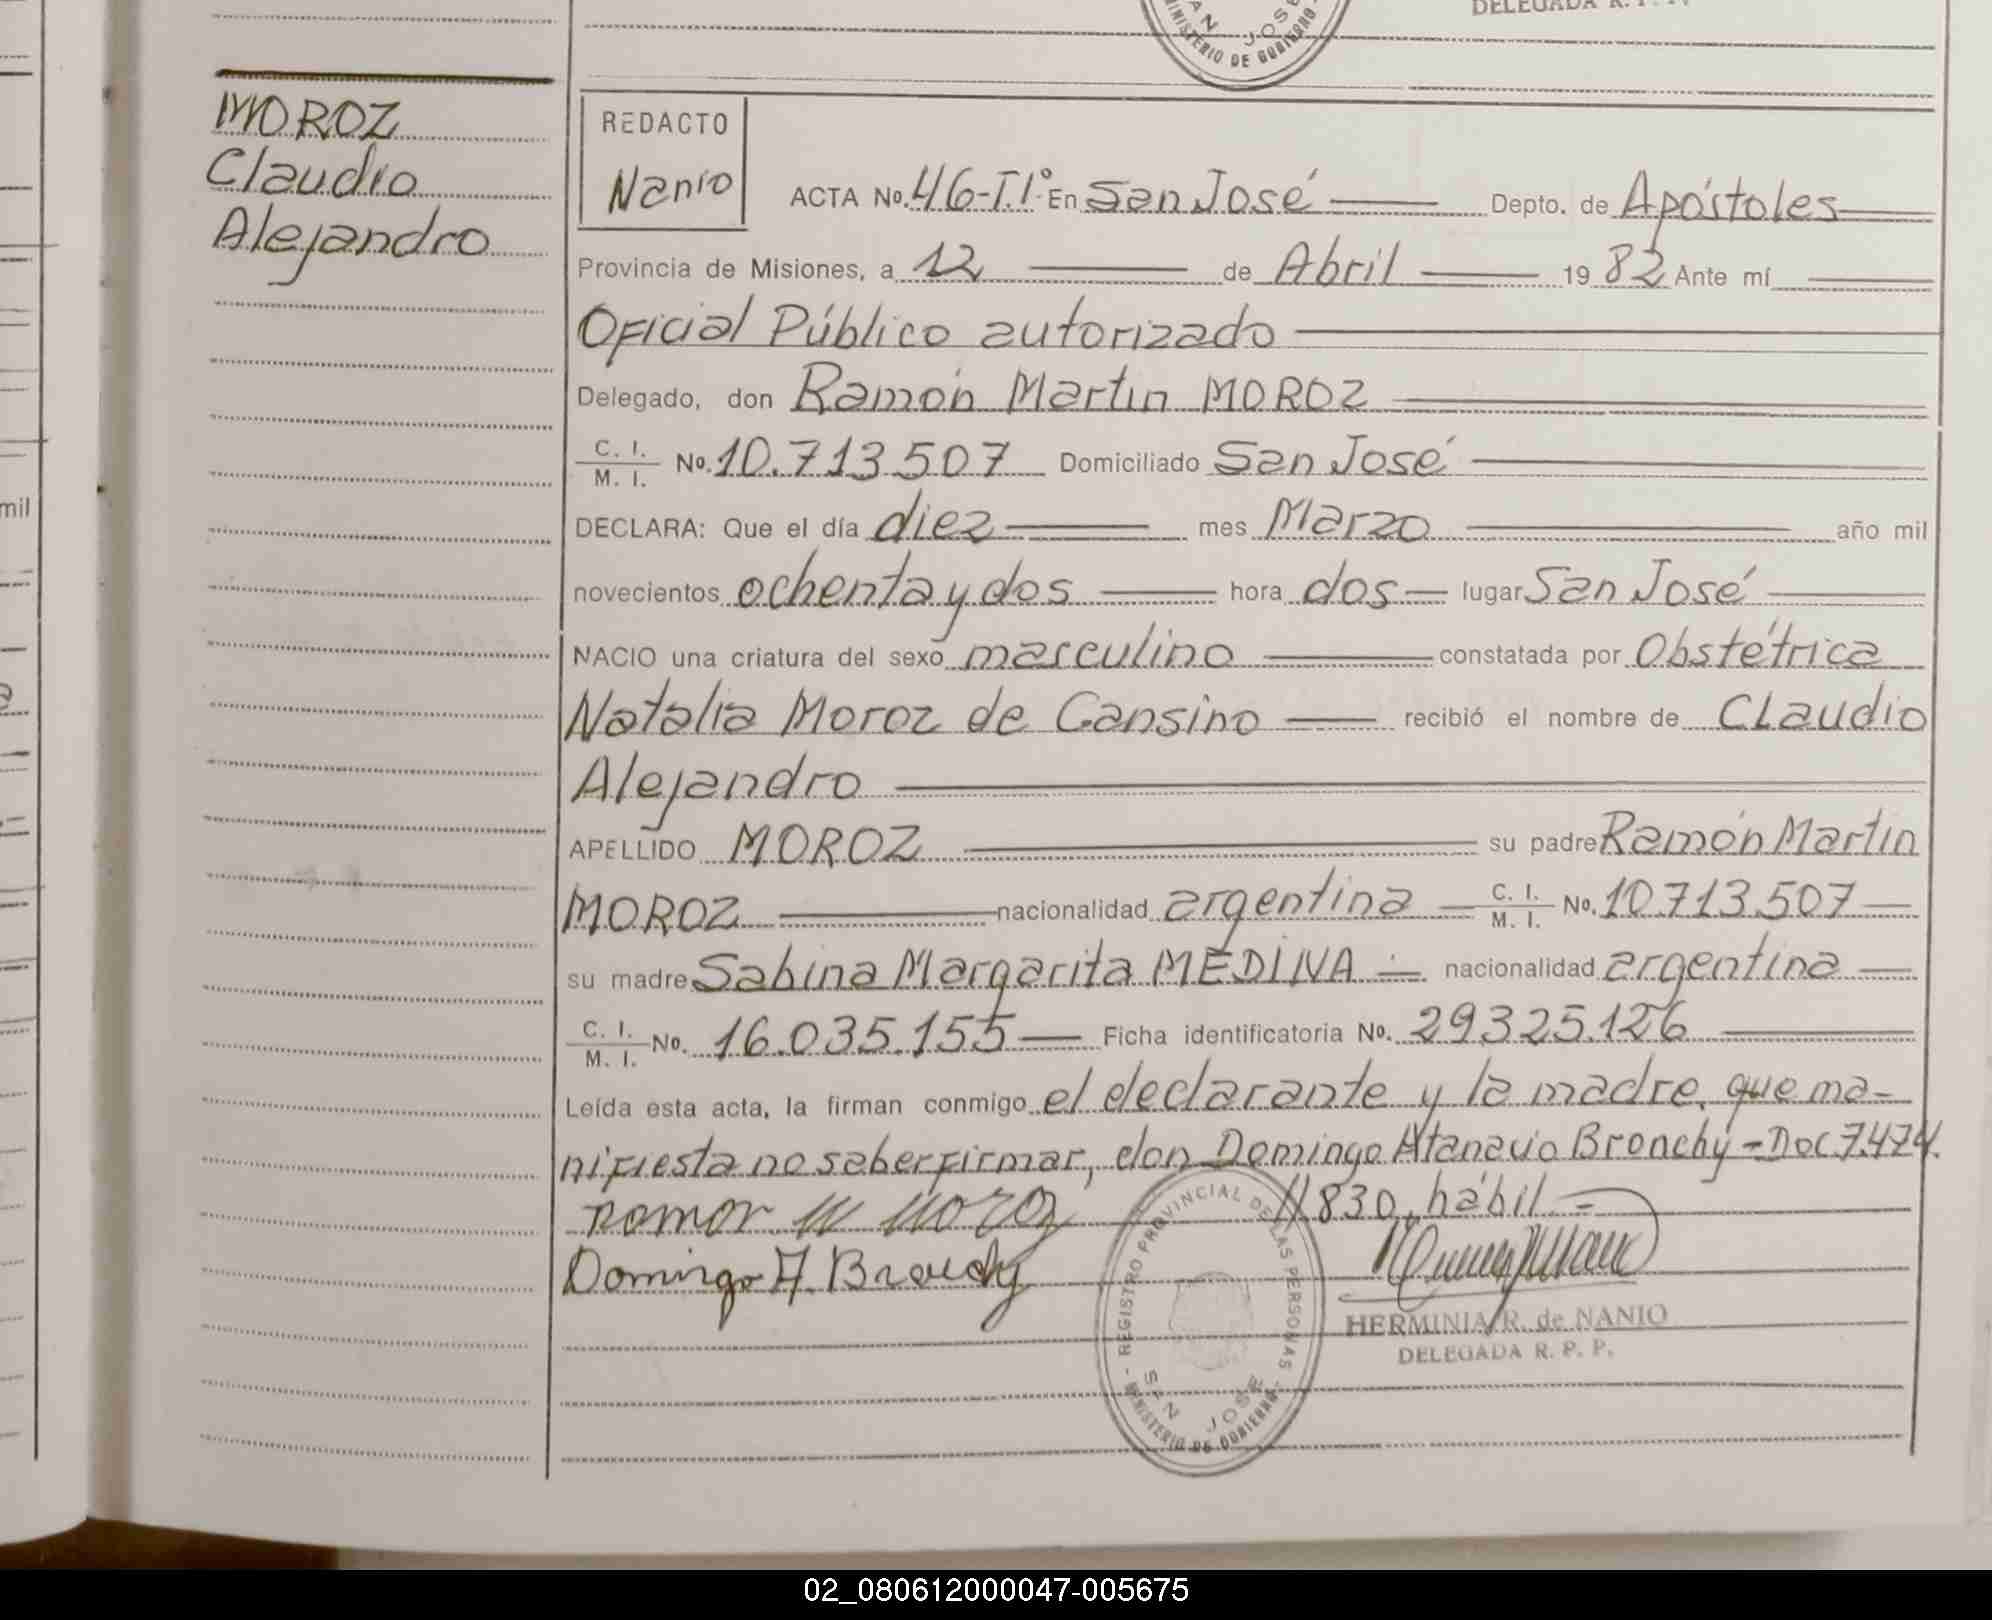 DELEGADA R. P. P.
SAN JOSE
MINISTERIO DE GOBIERNO
MOROZ
Claudio
Alejandro
mil
REDACTO
Nanio
ACTA No. 46-T.1º En San José Depto. de Apóstoles
Provincia de Misiones, a 12 de Abril 1982 Ante mí
Oficial Público autorizado
Delegado, don Ramón Martin MOROZ
C. I.
M. I. No. 10.713.507 Domiciliado San José
DECLARA: Que el día diez mes Marzo año mil
novecientos ochenta y dos hora dos lugar San José
NACIO una criatura del sexo masculino constatada por Obstétrica
Natalia Moroz de Cansino recibió el nombre de Claudio
Alejandro
APELLIDO MOROZ su padre Ramón Martin
MOROZ nacionalidad argentina C. I.
M. I. No. 10.713.507
su madre Sabina Margarita MEDINA nacionalidad argentina
C. I.
M. I. No. 16.035.155 Ficha identificatoria No. 29.325.126
Leída esta acta, la firman conmigo el declarante y la madre, que ma-
nifiesta no saber firmar, don Domingo Atanacio Bronchy - Doc 7.474.
830, hábil.-
Ramon M Moroz
Domingo A. Bronchy
REGISTRO PROVINCIAL DE LAS PERSONAS
SAN JOSE
MINISTERIO DE GOBIERNO
HERMINIA R. de NANIO
DELEGADA R. P. P.
02_080612000047-005675